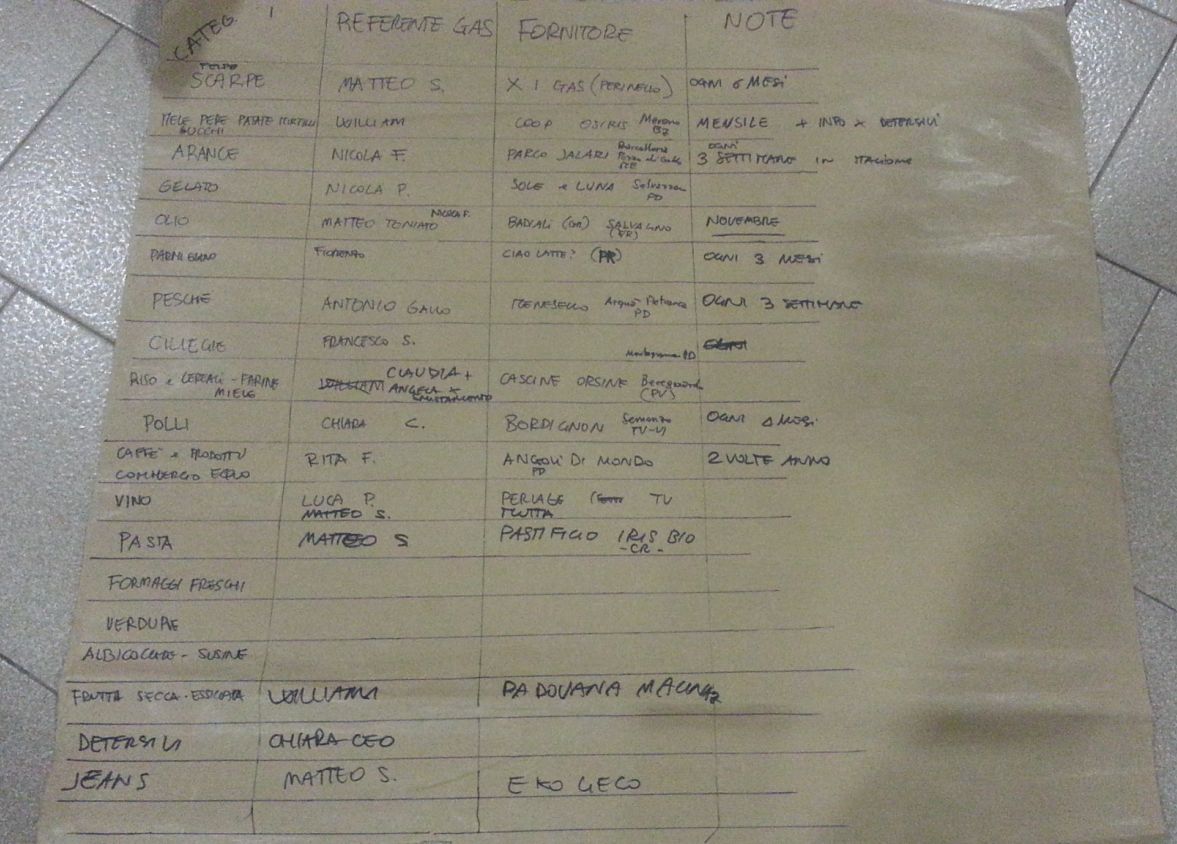 CATEG. 1 REFERENTE GAS FORNITORE NOTE
SCARPE MATTEO S. X I GAS (PERINELLO) OGNI 6 MESI
MELE PERE PATATE MIRTILLI SUCCHI WILLIAM COOP OSIRIS Merano BZ MENSILE + INFO X DETERSIVI
ARANCE NICOLA F. PARCO JALARI Barcellona Pozzo di Gotto ME OGNI 3 SETTIMANE IN STAGIONE
GELATO NICOLA P. SOLE e LUNA Selvazzano PD
OLIO MATTEO TONIATO NICOLA F. SALVAGNO (VR) NOVEMBRE
PARMIGIANO FIORENZO CIAO LATTE? (PR) OGNI 3 MESI
PESCHE ANTONIO GALLO Arquà Petrarca PD OGNI 3 SETTIMANE
CILIEGIE FRANCESCO S. PD
RISO e CEREALI - FARINE MIELE WILLIAM CLAUDIA + ANGELA X CASCINE ORSINE Bereguardo (PV)
POLLI CHIARA C. BORDIGNON Semonzo TV-VI OGNI MESI
CAFFE' e PRODOTTI COMMERCIO EQUO RITA F. ANGOLI DI MONDO PD 2 VOLTE ANNO
VINO LUCA P. MATTEO S. PERLAGE TV
PASTA MATTEO S PASTIFICIO IRIS BIO - CR -
FORMAGGI FRESCHI
VERDURE
ALBICOCCHE - SUSINE
FRUTTA SECCA - ESSICCATA WILLIAM PADOVANA
DETERSIVI CHIARA CEO
JEANS MATTEO S. EKO GECO